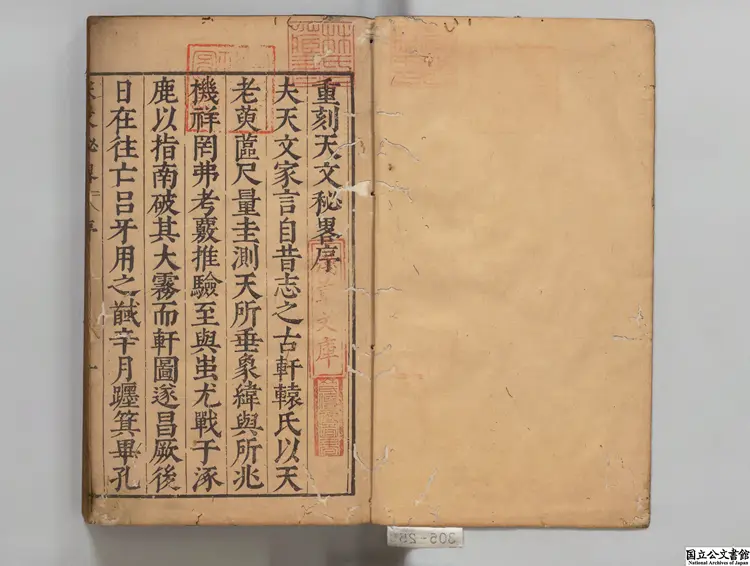 重刻天文秘畧序
夫天文家言自昔志之古軒轅氏以天
老萸蓲尺量圭測天所垂象緯與所兆
機祥罔弗考覈推驗至與蚩尤戰于涿
鹿以指南破其大霧而軒圖遂昌厥後
日在往亡呂牙用之馘辛月躔箕畢孔
林氏
藏書
文庫
305-28
国立公文書館
National Archives of Japan